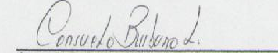 Consuelo Burbano L.